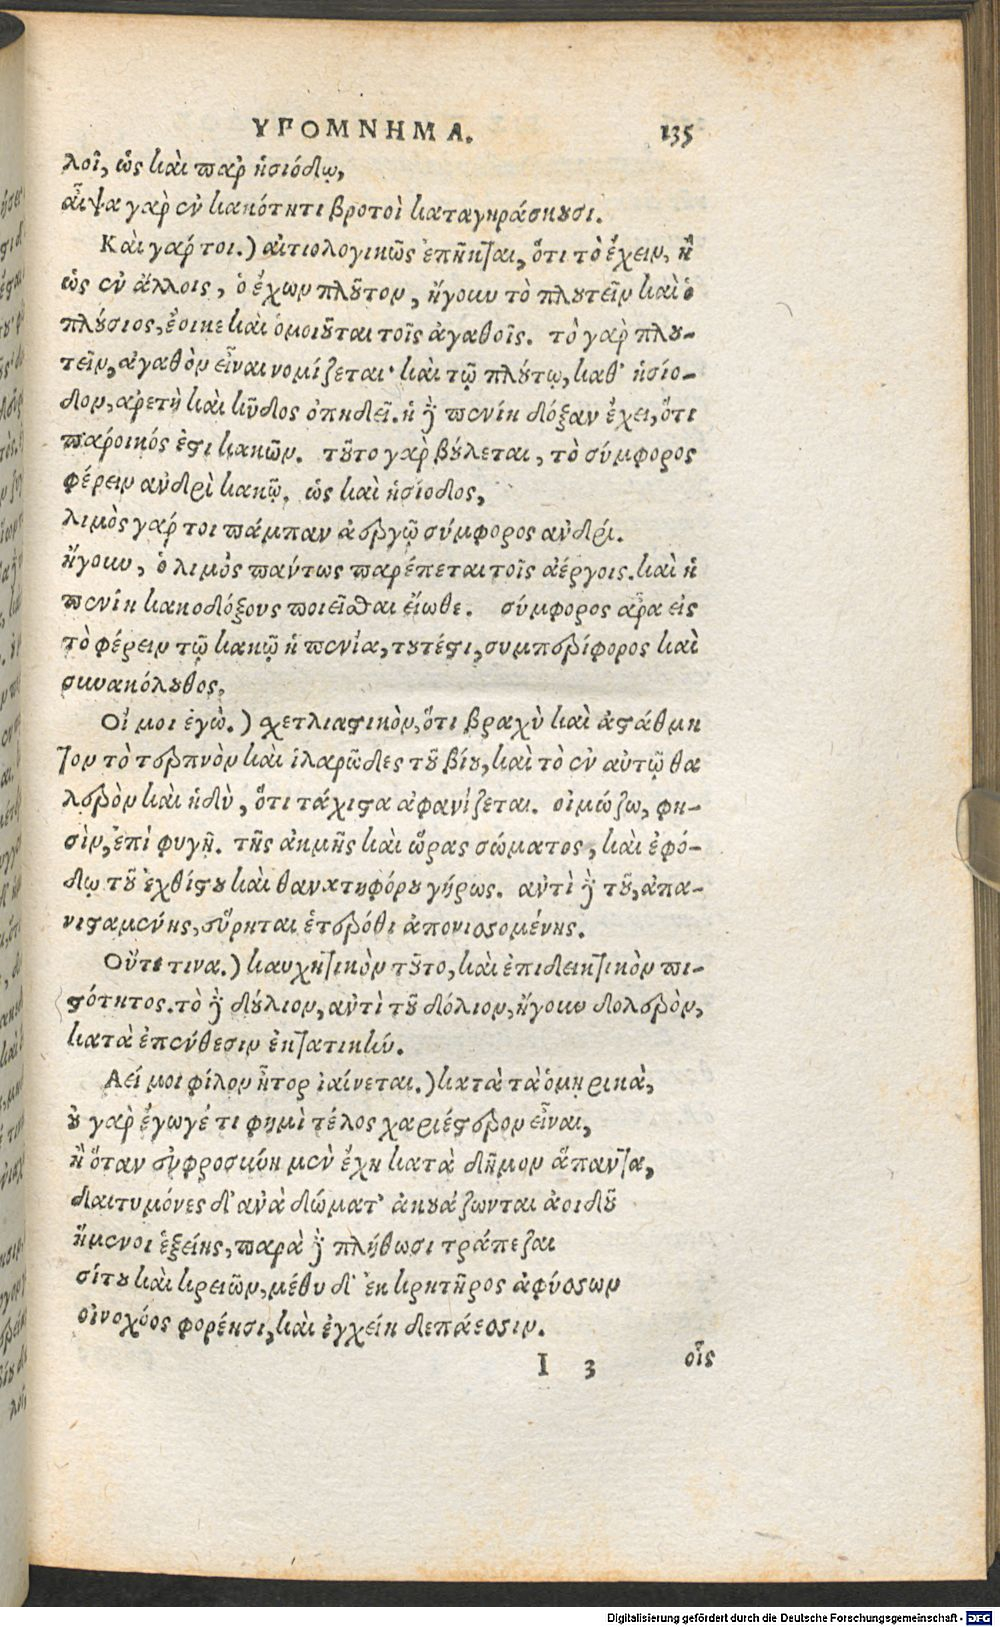 ΥΠΟΜΝΗΜΑ. 135
λοῖ, ὡς καὶ παρ ἡσιόδῳ,
αἶψα γαρ ἐν κακότητι βροτοὶ καταγηράσκουσι.
Καὶ γαρ τοι.) αἰτιολογικῶς ἐπῆκται, ὅτι τὸ ἔχειν, ἢ
ὡς ἐν ἄλλοις, ὁ ἔχων πλοῦτον, ἤγουν τὸ πλουτεῖν καὶ ὁ
πλούσιος, ἔοικε καὶ ὁμοιοῦται τοῖς ἀγαθοῖς. τὸ γαρ πλου-
τεῖν, ἀγαθὸν εἶναι νομίζεται· καὶ τῷ πλούτῳ, καθ' ἡσίο-
δον, ἀρετὴ καὶ κῦδος ὀπηδεῖ. ἡ δὲ πενίη δόξαν ἔχει, ὅτι
πάροικός ἐστι κακῶν. τοῦτο γαρ βούλεται, τὸ σύμφορος
φέρειν ἀνδρὶ κακῷ. ὡς καὶ ἡσίοδος,
λιμὸς γαρ τοι πάμπαν ἀεργῷ σύμφορος ἀνδρί.
ἤγουν, ὁ λιμὸς πάντως παρέπεται τοῖς ἀέργοις. καὶ ἡ
πενίη κακοδόξους ποιεῖσθαι εἴωθε. σύμφορος ἄρα εἰς
τὸ φέρειν τῷ κακῷ ἡ πενία, τουτέστι, συμπερίφορος καὶ
συνακόλουθος.
Οἴ μοι ἐγὼ.) σχετλιαστικὸν, ὅτι βραχὺ καὶ ἀστάθμη
τον τὸ τερπνὸν καὶ ἱλαρῶδες τοῦ βίου, καὶ τὸ ἐν αὐτῷ θα
λερὸν καὶ ἡδὺ, ὅτι τάχιστα ἀφανίζεται. οἰμώζω, φη-
σὶν, ἐπὶ φυγῇ. τῆς ἀκμῆς καὶ ὥρας σώματος, καὶ ἐφό-
δῳ τοῦ ἐχθίστου καὶ θανατηφόρου γήρως. ἀντὶ δὲ τοῦ, ἀπα-
νισταμένης, εὕρηται ἑτερόθι ἀπονισσομένης.
Οὔτε τινα.) καυχητικὸν τοῦτο, καὶ ἐπιδεικτικὸν πι-
στότητος. τὸ δὲ δούλιον, ἀντὶ τοῦ δόλιον, ἤγουν δολερὸν,
κατὰ ἐπένθεσιν ἐκτατικήν.
Αεί μοι φίλον ἦτορ ἰαίνεται.) κατὰ τὰ ὁμηρικὰ,
οὐ γαρ ἔγωγέ τι φημὶ τέλος χαριέστερον εἶναι,
ἢ ὅταν εὐφροσύνη μὲν ἔχῃ κατὰ δῆμον ἅπαντα,
δαιτυμόνες δ' ἀνὰ δώματ' ἀκουάζωνται ἀοιδοῦ
ἥμενοι ἑξείης, παρὰ δὲ πλήθωσι τράπεζαι
σίτου καὶ κρειῶν, μέθυ δ' ἐκ κρητῆρος ἀφύσσων
οἰνοχόος φορέῃσι, καὶ ἐγχείῃ δεπάεσσιν.
I 3 οἷς
Digitalisierung gefördert durch die Deutsche Forschungsgemeinschaft - DFG